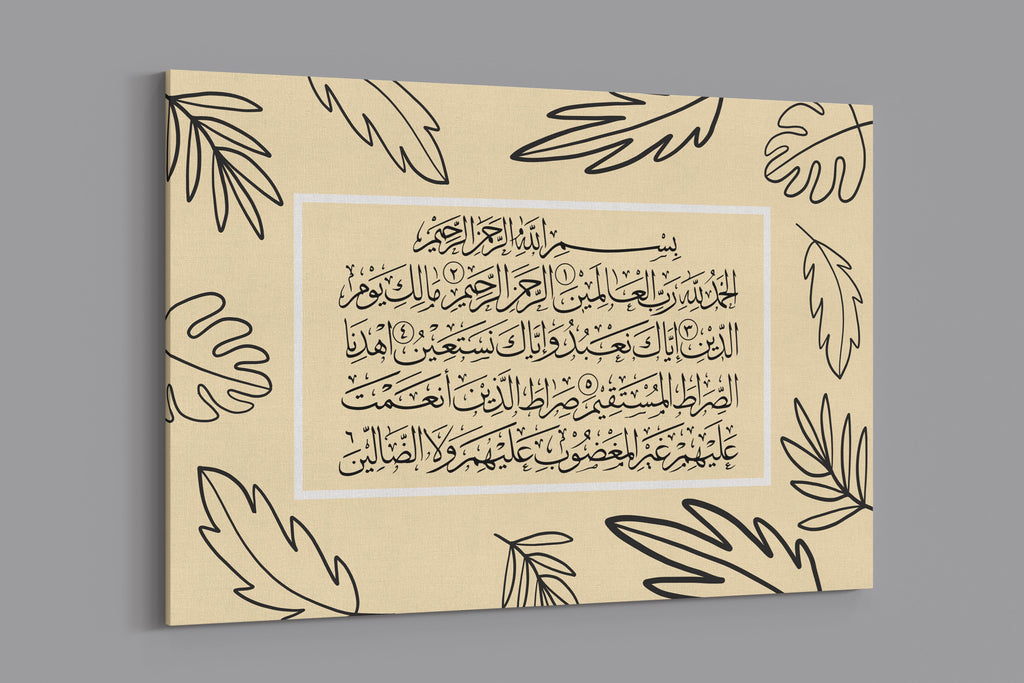 بِسْمِ اللَّهِ الرَّحْمَنِ الرَّحِيمِ
الْحَمْدُ لِلَّهِ رَبِّ الْعَالَمِيْنَ ١ الرَّحْمَنِ الرَّحِيمِ ٢ مَالِكِ يَوْمِ
الدِّيْنِ ٣ إِيَّاكَ نَعْبُدُ وَإِيَّاكَ نَسْتَعِيْنُ ٤ اهْدِنَا
الصِّرَاطَ الْمُسْتَقِيْمَ ٥ صِرَاطَ الَّذِيْنَ أَنْعَمْتَ
عَلَيْهِمْ غَيْرِ الْمَغْضُوْبِ عَلَيْهِمْ وَلَا الضَّالِّيْنَ ٦